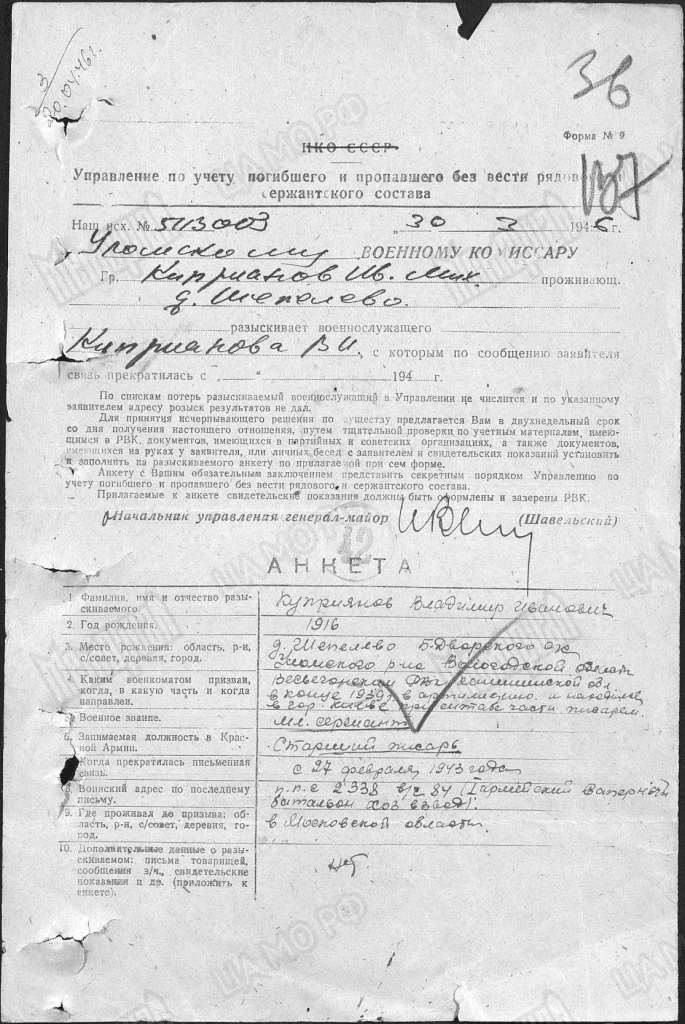 3
20.04.46г.
36
Форма № 9
НКО СССР
137
Управление по учету погибшего и пропавшего без вести рядового и
сержантского состава
Наш исх. № 513003 „ 30 “ 3 1946 г.
Уломскому ВОЕННОМУ КОМИССАРУ
Гр. Киприанов Ив. Мих. проживающ.
д. Шепелево.
разыскивает военнослужащего
Киприанова В И , с которым по сообщению заявителя
связь прекратилась с „ “ 194 г.
По спискам потерь разыскиваемый военнослужащий в Управлении не числится и по указанному
заявителем адресу розыск результатов не дал.
Для принятия исчерпывающего решения по существу предлагается Вам в двухнедельный срок
со дня получения настоящего отношения, путем тщательной проверки по учетным материалам, имею-
щимся в РВК, документов, имеющихся в партийных и советских организациях, а также документов,
имеющихся на руках у заявителя, или личных бесед с заявителем и свидетельских показаний установить
и заполнить на разыскиваемого анкету по прилагаемой при сем форме.
Анкету с Вашим обязательным заключением представить секретным порядком Управлению по
учету погибшего и пропавшего без вести рядового и сержантского состава.
Прилагаемые к анкете свидетельские показания должны быть оформлены и заверены РВК.
Начальник управления генерал-майор (Шавельский)
12
АНКЕТА
1. Фамилия, имя и отчество разы-
скиваемого. Куприянов Владимир Иванович
2. Год рождения. 1916
3. Место рождения: область, р-н, д. Шепелево Б-Дворского с/с
с/совет, деревня, город. Уломского р-на Вологодской области
4. Каким военкоматом призван, Весьегонским РВК Калининской обл.
когда, в какую часть и когда в конце 1939 г в артиллерию и находился
направлен. в гор. Киеве при штабе части писарем.
5. Военное звание. Мл. сержант
6. Занимаемая должность в Крас-
ной Армии. Старший писарь
7. Когда прекратилась письменная
связь. с 27 февраля 1943 года
8. Воинский адрес по последнему п.п.с 2338 в/ч 84 Гармейский Запасный
письму. батальон хоз взвод.
9. Где проживал до призыва: об-
ласть, р-н, с/совет, деревня, го- в Московской области.
род.
10. Дополнительные данные о разы-
скиваемом: письма товарищей, нет
сообщения з/ч., свидетельские
показания и др. (приложить к
анкете).
ЦАМО РФ